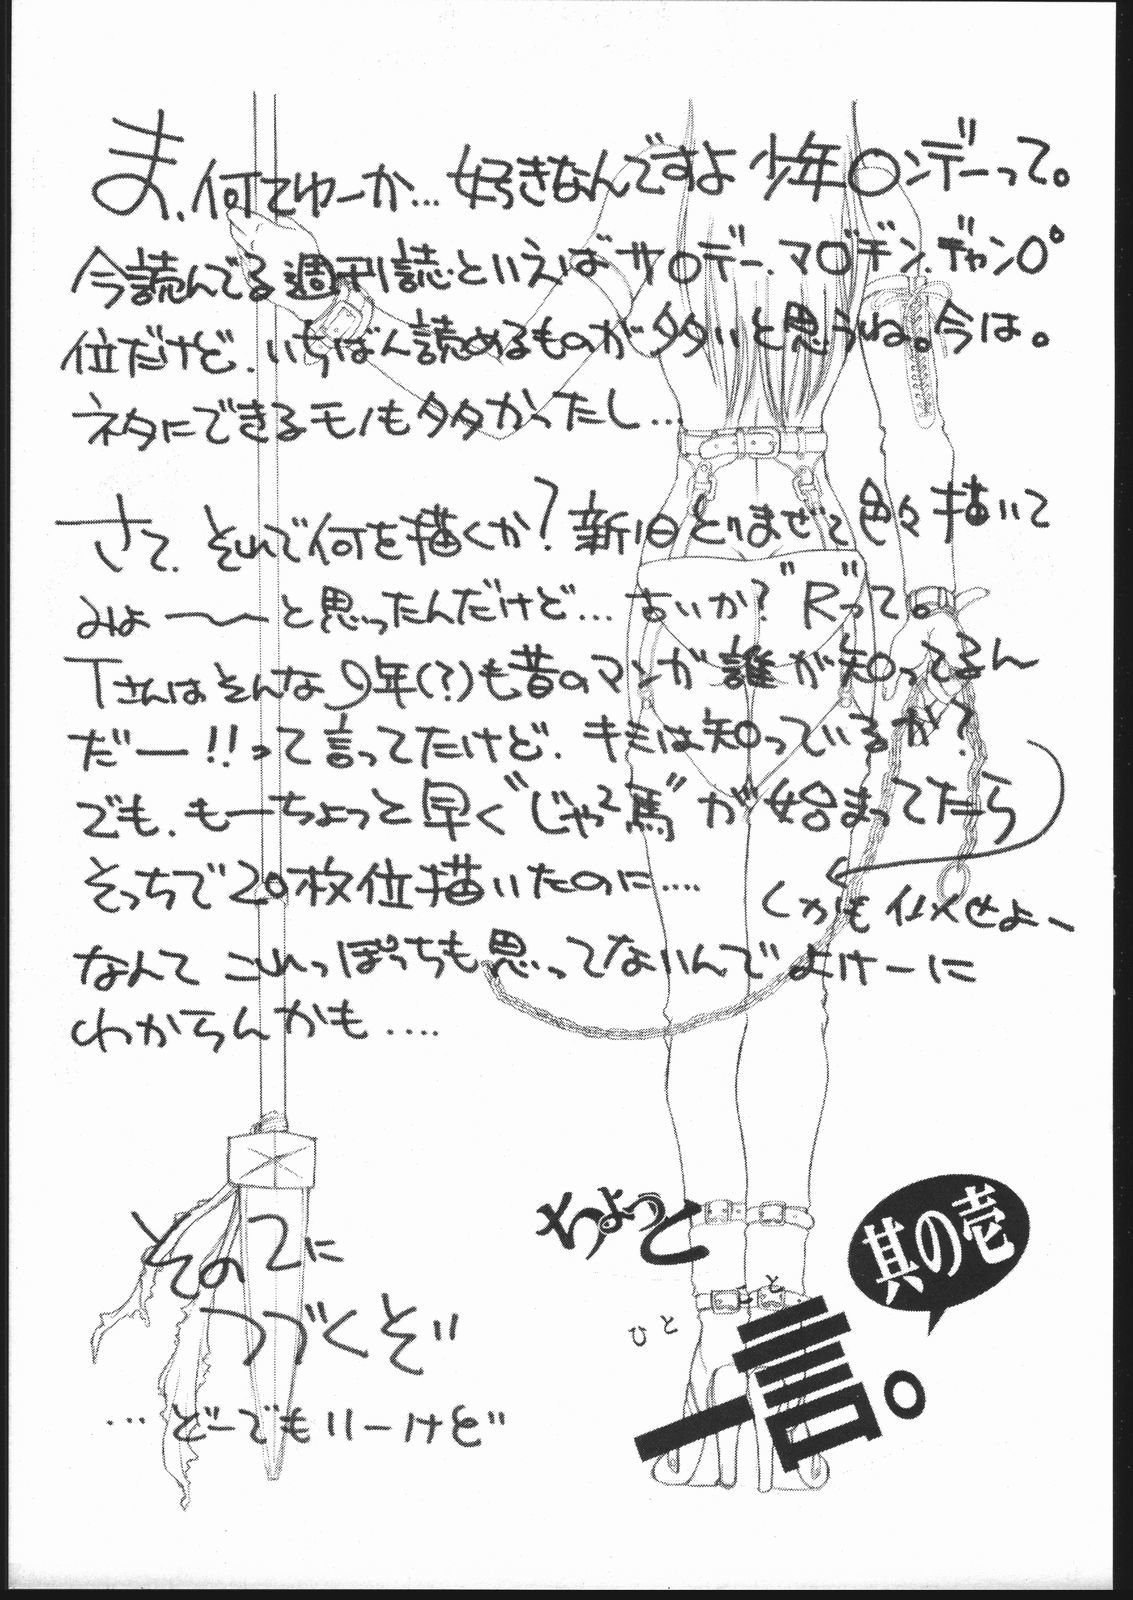 ま、何てゆーか…好きなんですよ少年〇ンデーって。
今読んでる週刊誌といえばサ〇デー、マ〇ヂン、ヂャン〇゜
位だけど、いちばん読めるものが多いと思うね。今は。
ネタにできるモノも多かったし…
さて、それで何を描くか?新旧とりまぜて色々描いて
みよ〜〜と思ったんだけど…古いか?〝R〟って。
Tさんはそんな9年(?)も昔のマンガ誰が知ってるん
だー!!って言ってたけど、キミは知っているか?
でも、もーちょっと早く〝じゃ2馬〟が始まってたら
そっちで20枚位描いたのに‥‥
しかもイメせよ〜
なんてこれっぽっちも思ってないんでよけーに
わからんかも‥‥
その2に
つづくぞ〃
…どーでもいーけどっ
ちょっと
ひと こと
一言。
其の壱